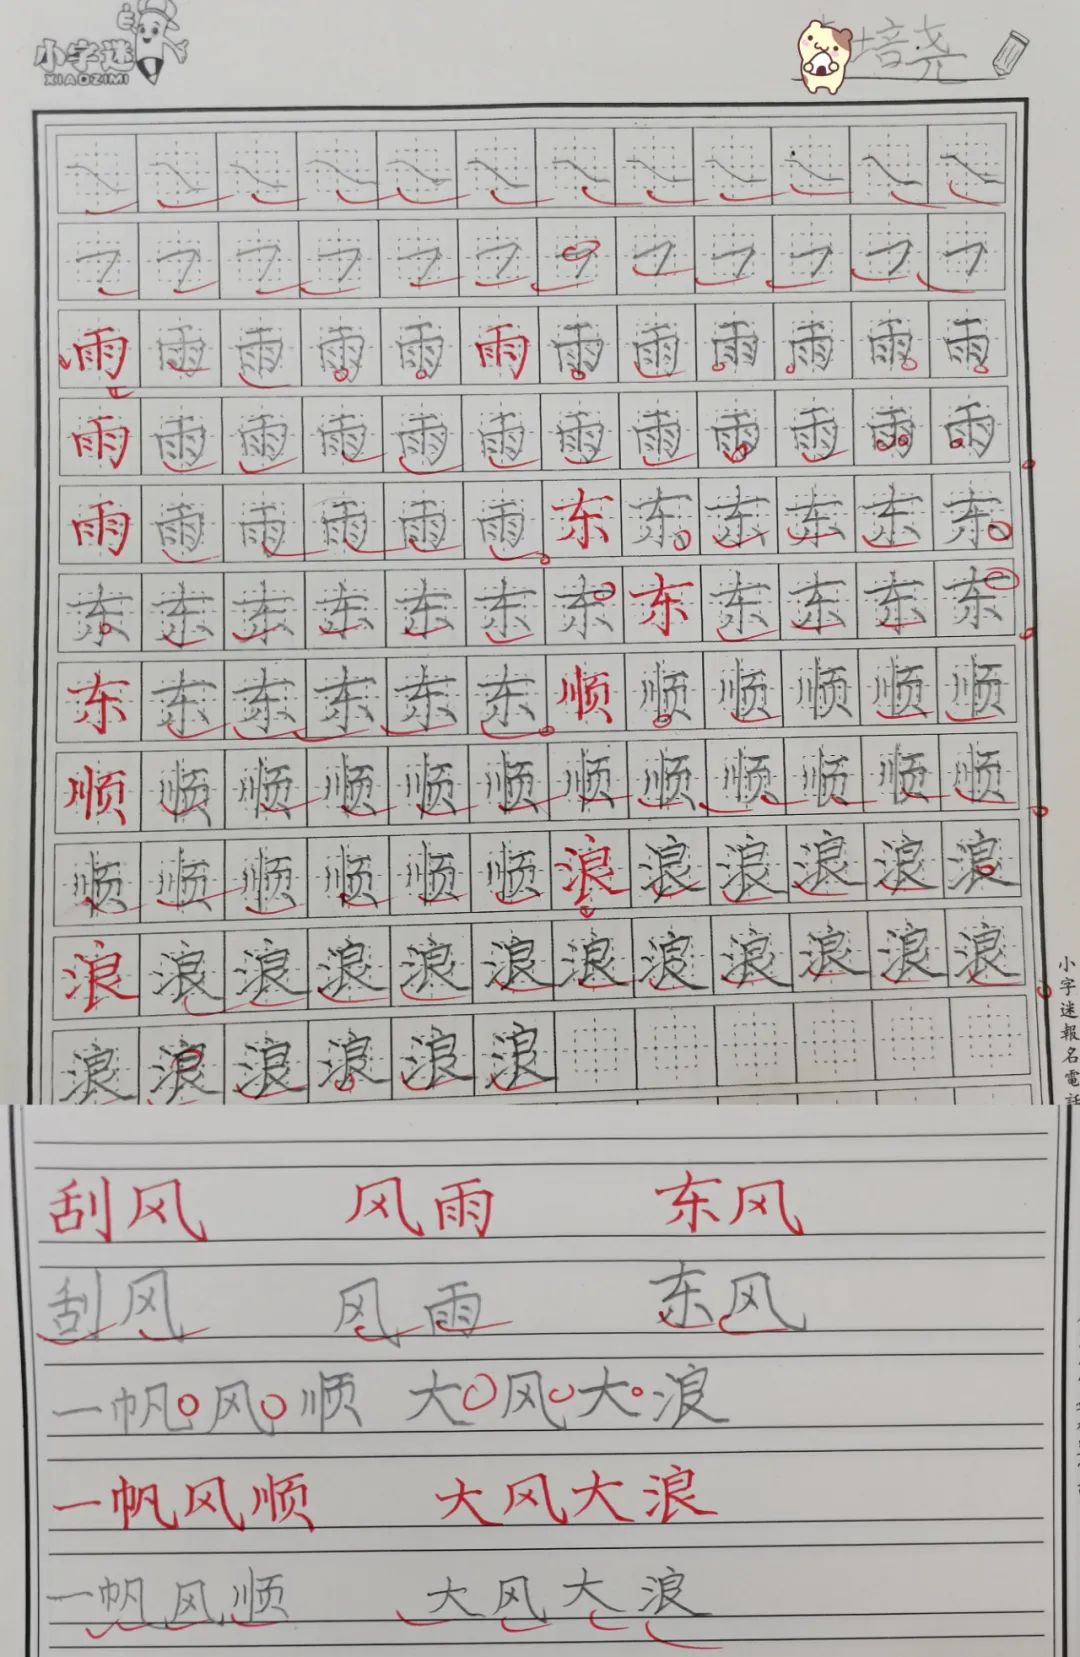 小字迷
XIAOZIMI
培尧
雨雨雨雨雨雨雨雨雨雨雨雨
雨雨雨雨雨雨雨雨雨雨雨雨
雨雨雨雨雨雨东东东东东东
东东东东东东东东东东东东
东东东东东东顺顺顺顺顺顺
顺顺顺顺顺顺顺顺顺顺顺顺
顺顺顺顺顺顺浪浪浪浪浪浪
浪浪浪浪浪浪浪浪浪浪浪浪
浪浪浪浪浪浪
小字迷報名電話
刮风 风雨 东风
刮风 风雨 东风
一帆风顺 大风大浪
一帆风顺 大风大浪
一帆风顺 大风大浪